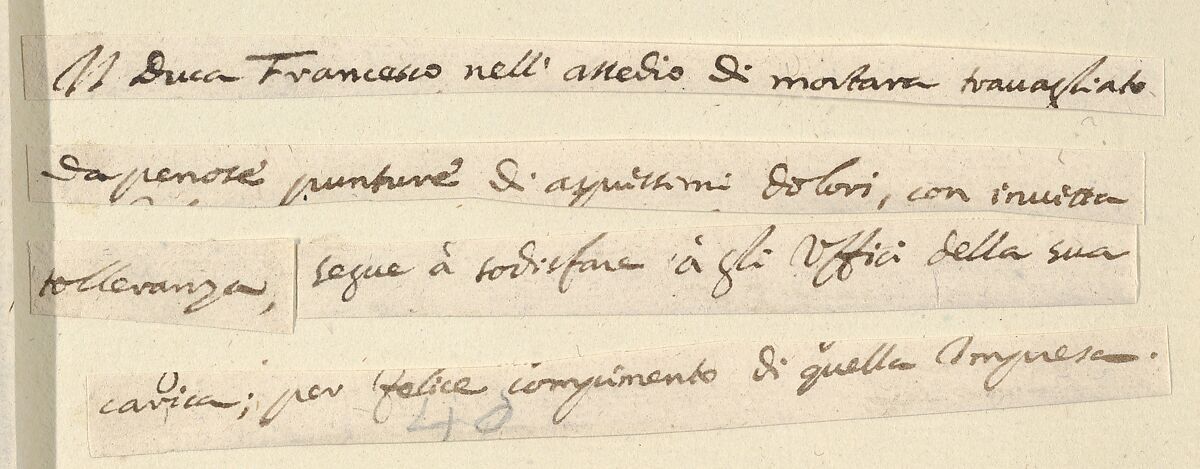 Il Duca Francesco nell' assedio di mortara travagliato
da penose punture di asprissimi dolori, con invitta
tolleranza, segue à sodisfare à gli Uffici della sua
carica; per felice compimento di quella Impresa.
48